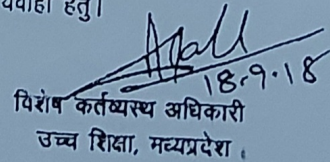 हेतु।
18.9.18
विशेष कर्तव्यस्थ अधिकारी
उच्च शिक्षा, मध्यप्रदेश